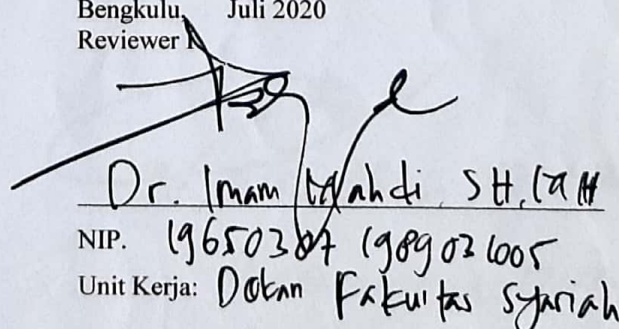 Bengkulu, Juli 2020
Reviewer I
Dr. Imam Mahdi, SH, MH
NIP. 19650307 198903 1005
Unit Kerja: Dekan Fakultas Syariah